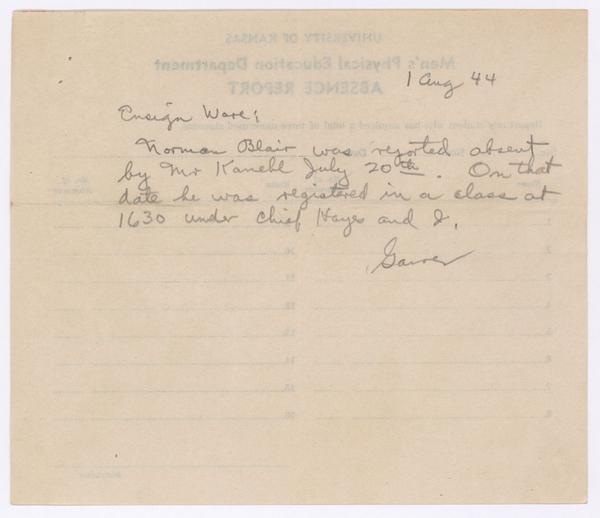 1 Aug 44
Ensign Ware:
Norman Blair was reported absent
by Mr Kanehl July 20th. On that
date he was registered in a class at
1630 under Chief Hayes and I.
UNIVERSITY OF KANSAS
Men's Physical Education Department
ABSENCE REPORT